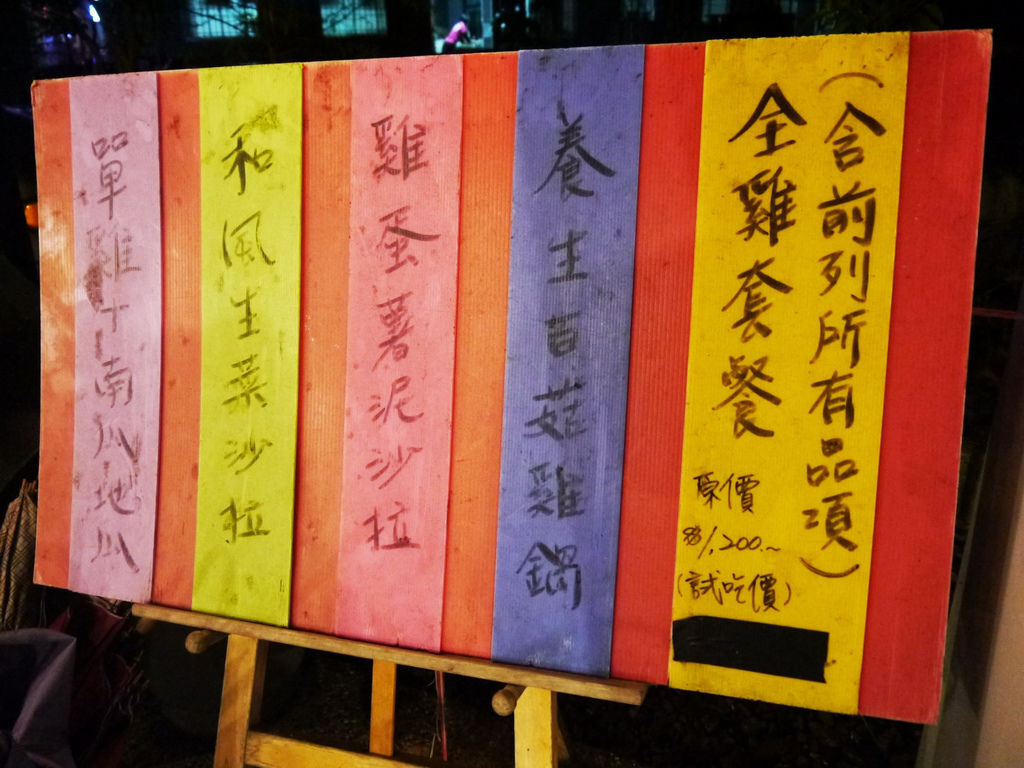 （含前列所有品項）
全雞套餐
原價
$1,200.~
(試吃價)
養生百菇雞鍋
雞蛋薯泥沙拉
和風生菜沙拉
單雞+南瓜地瓜